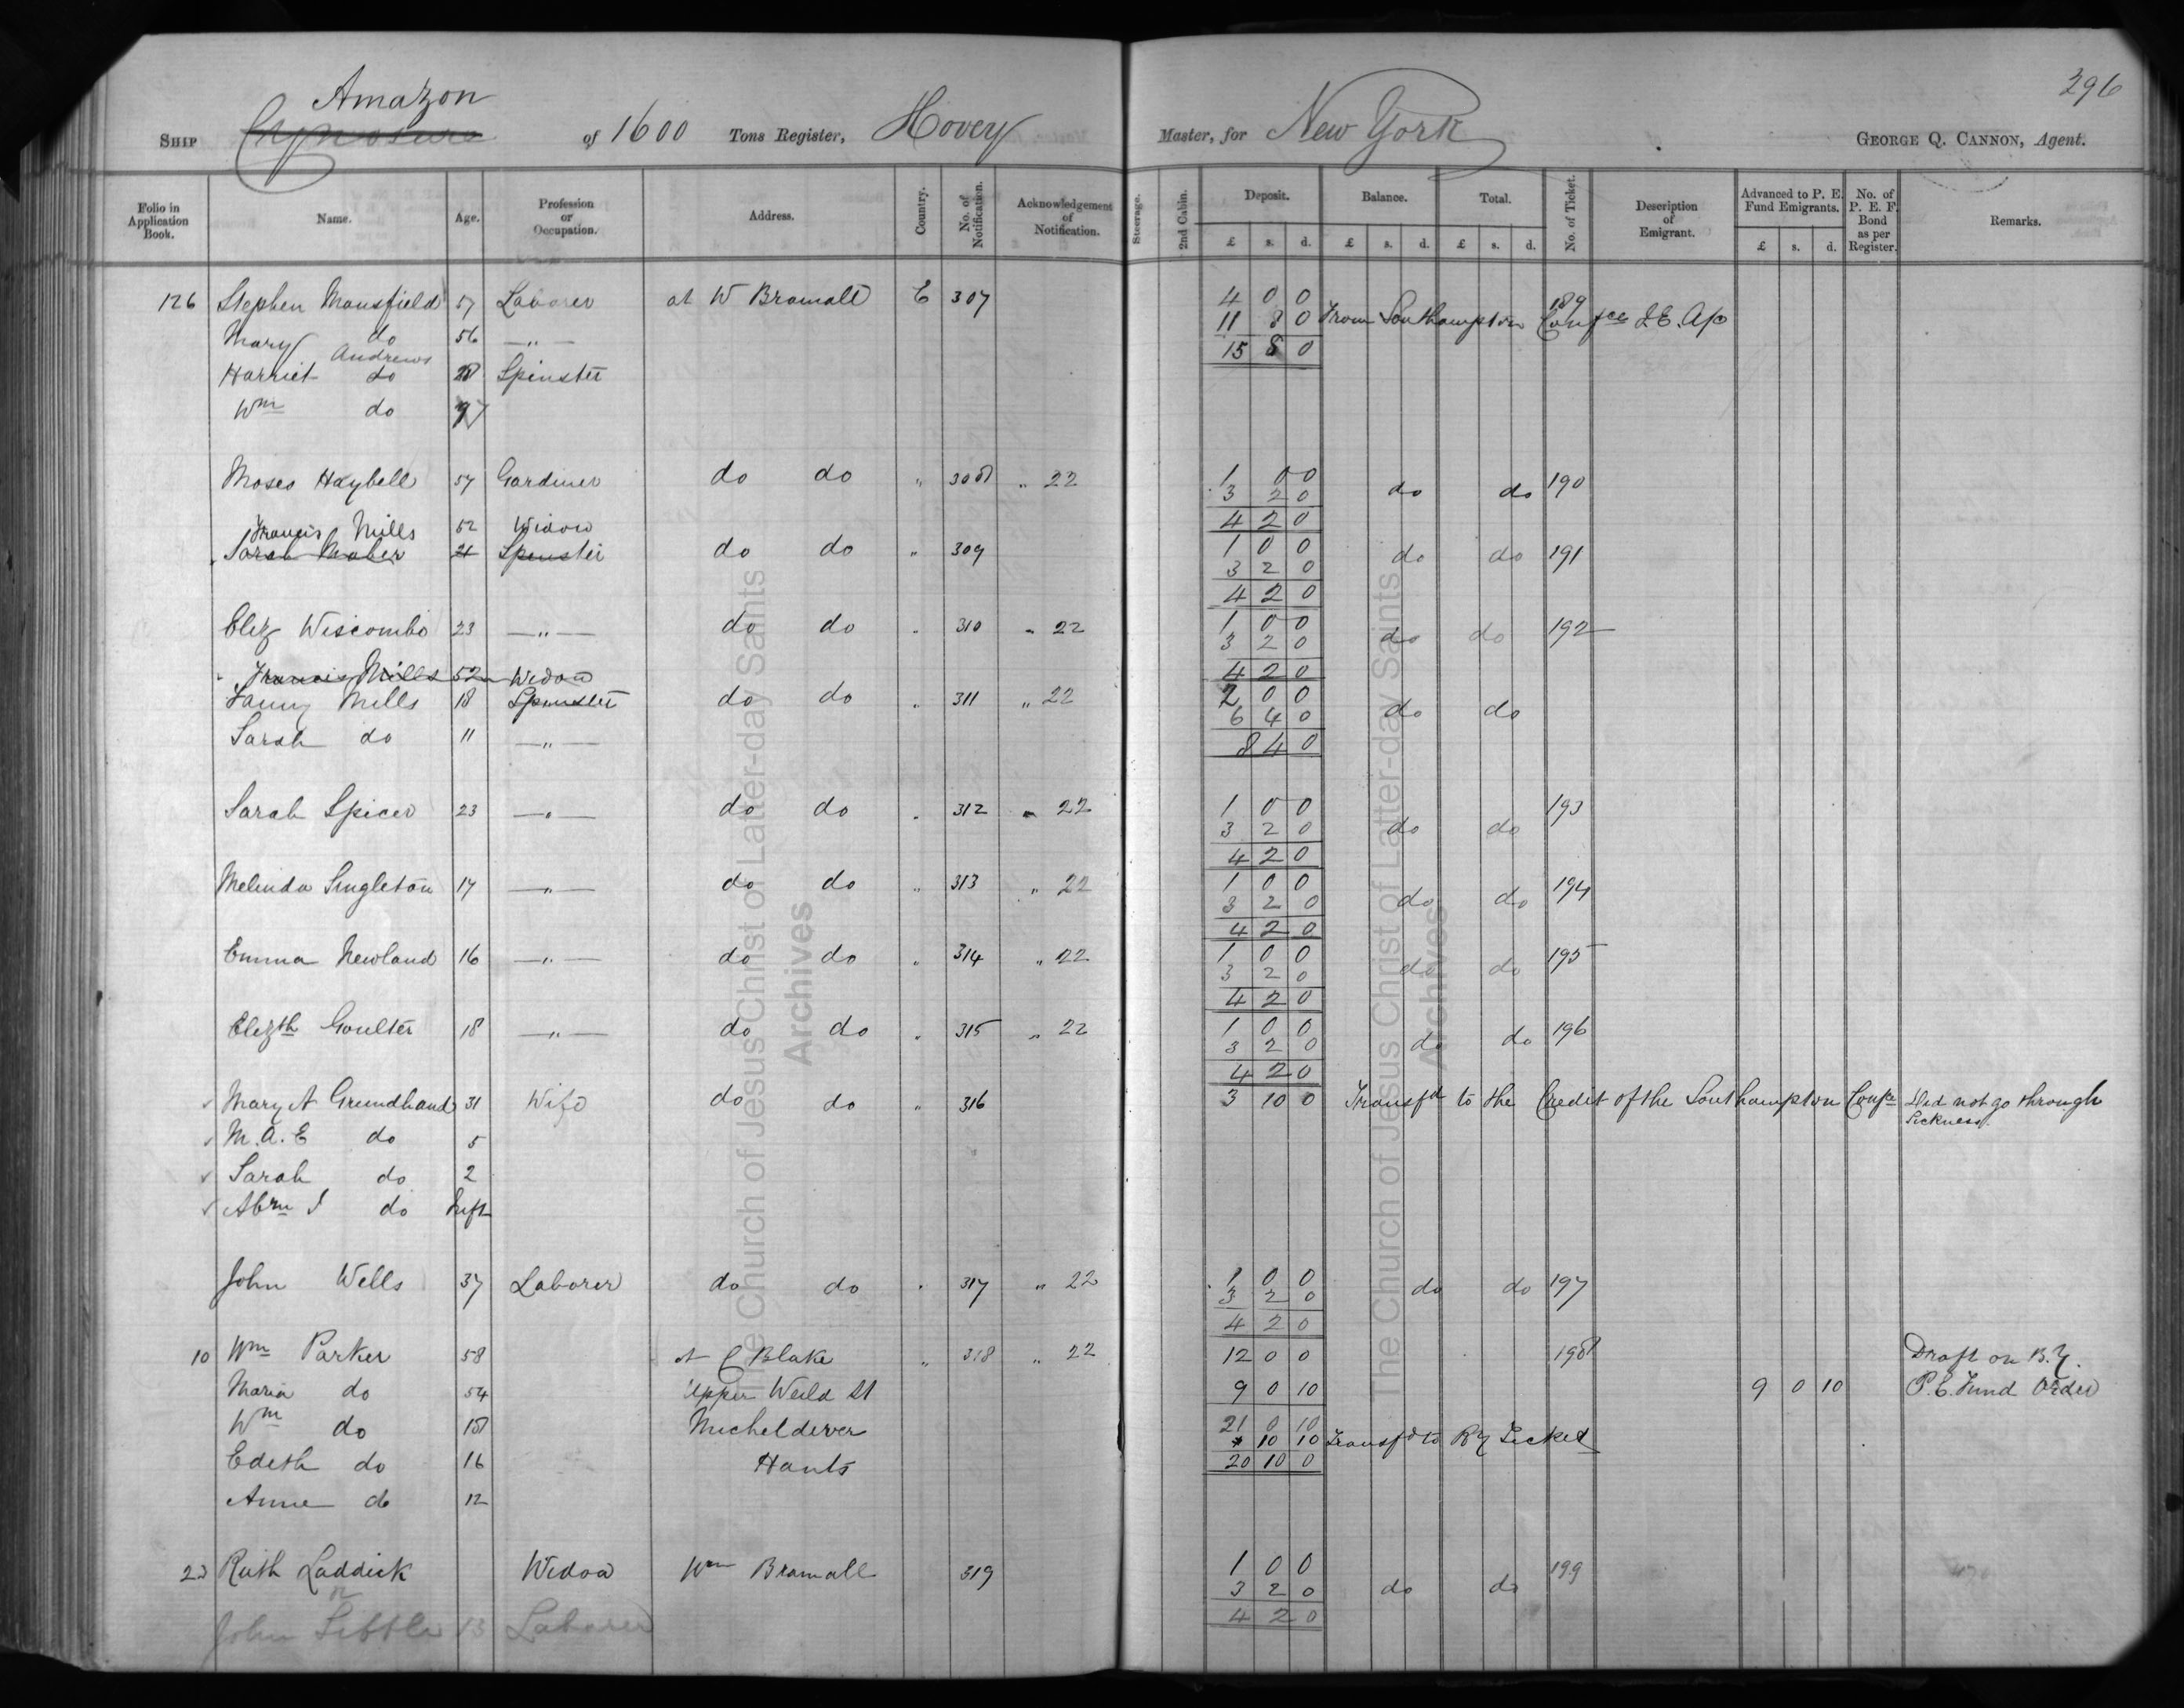 296
Amazon
SHIP Cynosure of 1600 Tons Register, Hovey Master, for New York GEORGE Q. CANNON, Agent.
Folio in Application Book. Name. Age. Profession or Occupation. Address. Country. No. of Notification. Acknowledgement of Notification. Steerage. 2nd Cabin. Deposit. Balance. Total. No. of Ticket. Description of Emigrant. Advanced to P. E. Fund Emigrants. No. of P. E. F. Bond as per Register. Remarks.
£ s. d. £ s. d. £ s. d. £ s. d.
126 Stephen Mansfield 57 Laborer at W Bramall E 307 4 0 0 189
11 8 0 From Southampton Confce I.E. A/c
Mary do 56 —"— 15 8 0
Andrews
Harriet do 28 Spinster
Wm do 9
Moses Haybell 57 Gardiner do do " 308 " 22 1 0 0 190
3 2 0 do do
4 2 0
Francis Mills 52 Widow
Sarah Maber 21 Spinster do do " 309 1 0 0 191
3 2 0 do do
4 2 0
Eliz Wiscombe 23 —"— do do " 310 " 22 1 0 0 192
3 2 0 do do
4 2 0
Francis Mills 52 Widow
Fanny Mills 18 Spinster do do " 311 " 22 2 0 0
6 4 0 do do
Sarah do 11 —"— 8 4 0
Sarah Spicer 23 —"— do do " 312 " 22 1 0 0 193
3 2 0 do do
4 2 0
Melinda Singleton 17 —"— do do " 313 " 22 1 0 0 194
3 2 0 do do
4 2 0
Emma Newland 16 —"— do do " 314 " 22 1 0 0 195
3 2 0 do do
4 2 0
Elizth Goulter 18 —"— do do " 315 " 22 1 0 0 196
3 2 0 do do
4 2 0
Mary A Grundhand 31 Wife do do " 316 3 10 0 Transfd to the Credit of the Southampton Confce Did not go through
Sickness.
M. A. E do 5
Sarah do 2
Abrm J do Inft
John Wells 37 Laborer do do " 317 " 22 1 0 0 197
3 2 0 do do
4 2 0
10 Wm Parker 58 at C Blake " 318 " 22 12 0 0 198 Draft on B.Y.
Maria do 54 Upper Weild St 9 0 10 9 0 10 P.E. Fund Order
Wm do 18 Micheldever 21 0 10
10 10 Transfd to Ry Ticket
Edith do 16 Hants 20 10 0
Anne do 12
23 Ruth Laddick Widow Wm Bramall 319 1 0 0 199
or 3 2 0 do do
John Little 13 Laborer 4 2 0
The Church of Jesus Christ of Latter-day Saints
Archives
The Church of Jesus Christ of Latter-day Saints
Archives